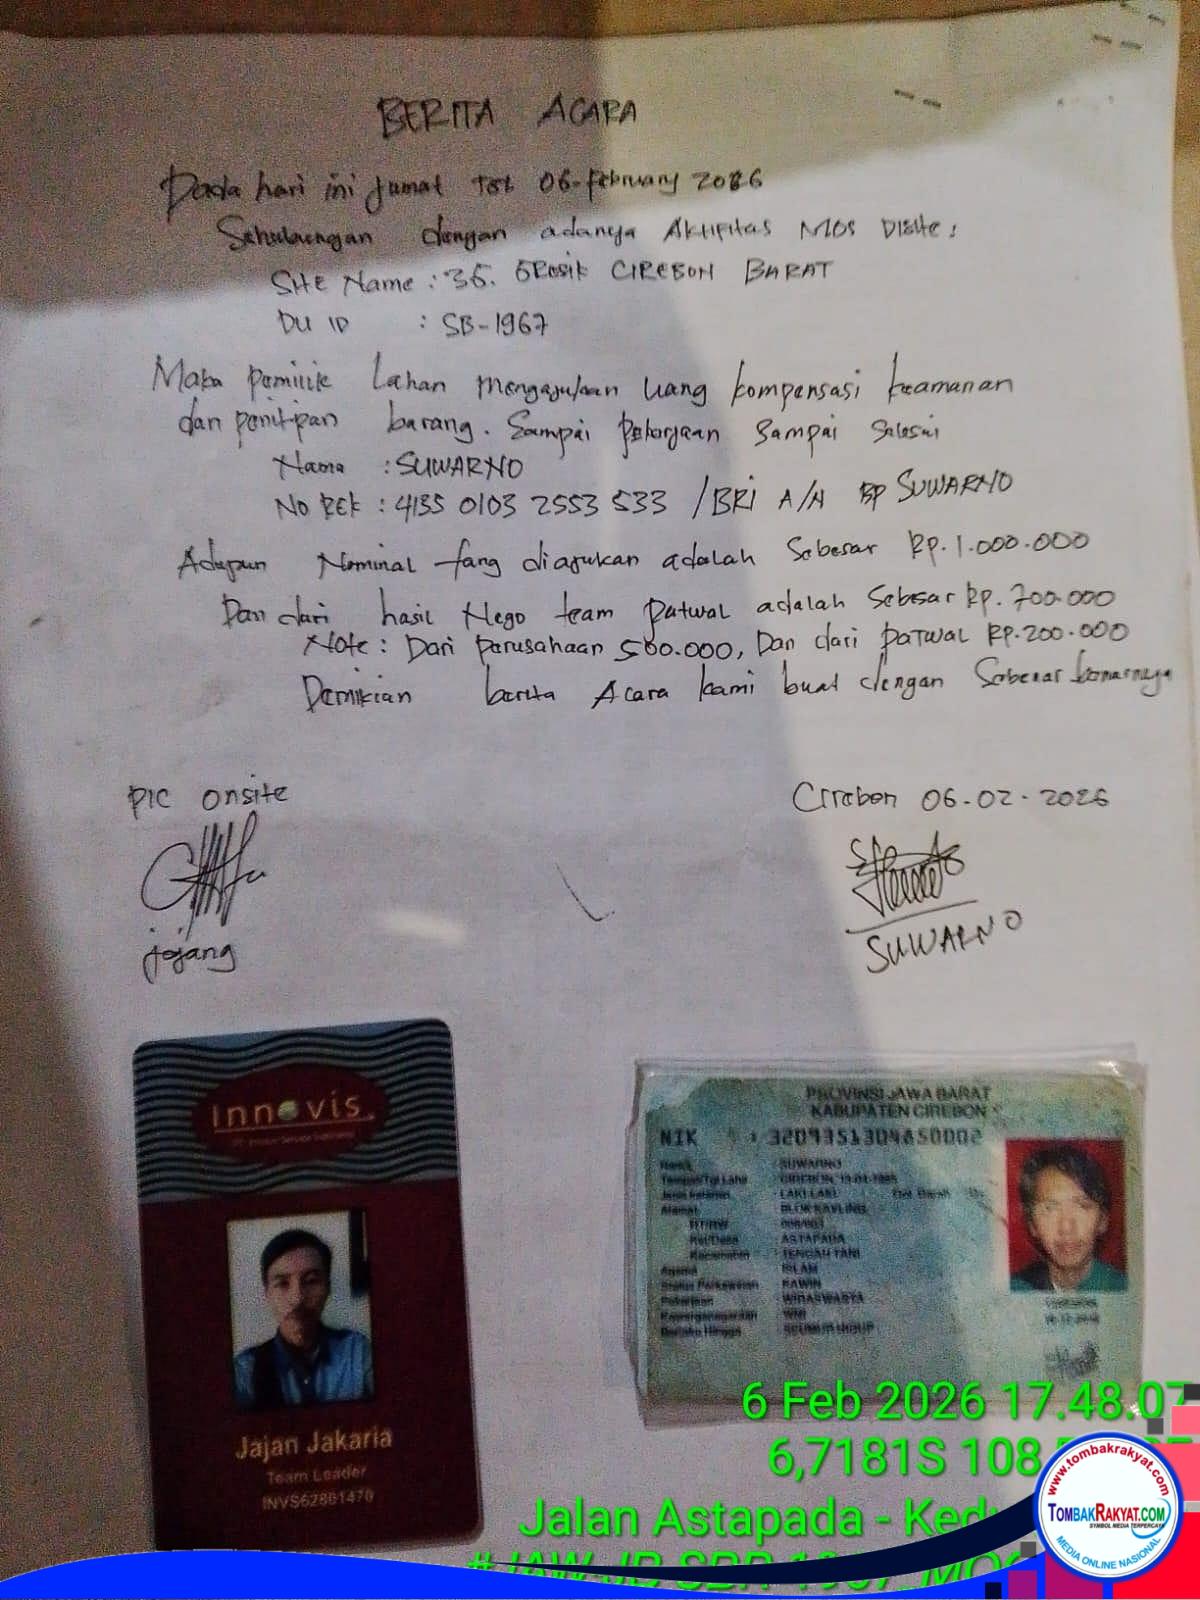 BERITA ACARA
Pada hari ini Jumat Tgl 06-February 2026
Sehubungan dengan adanya Aktifitas MOS Disite:
Site Name : 36. GRESIK CIREBON BARAT
DU ID : SB-1967
Maka pemilik Lahan mengajukan uang kompensasi keamanan
dan penitipan barang. Sampai pekerjaan sampai selesai
Nama : SUWARNO
NO REK : 4135 0103 2553 533 /BRI A/N BP SUWARNO
Adapun Nominal yang diajukan adalah Sebesar Rp.1.000.000
Dan dari hasil Nego team patwal adalah Sebesar Rp.700.000
Note : Dari perusahaan 500.000, Dan dari PATWAL Rp.200.000
Demikian berita Acara kami buat dengan Sebenar benarnya
PIC onsite
Cirebon 06-02-2026
jojang
SUWARNO
Innovis
Jajan Jakaria
Team Leader
INVS62801470
PROVINSI JAWA BARAT
KABUPATEN CIREBON
NIK : 3209351304850002
Nama : SUWARNO
Tempat/Tgl Lahir : CIREBON, 13-04-1985
Jenis kelamin : LAKI-LAKI Gol. Darah
Alamat : BLOK KAVLING
RT/RW
Kel/Desa : ASTAPADA
Kecamatan : TENGAH TANI
Agama : ISLAM
Status Perkawinan : KAWIN
Pekerjaan : WIRASWASTA
Kewarganegaraan : WNI
Berlaku Hingga : SEUMUR HIDUP
6 Feb 2026 17.48.07
6,7181S 108
Jalan Astapada - Ked
www.tombakrakyat.com
TOMBAKRAKYAT.COM
SYMBOL MEDIA TERPERCAYA
MEDIA ONLINE NASIONAL